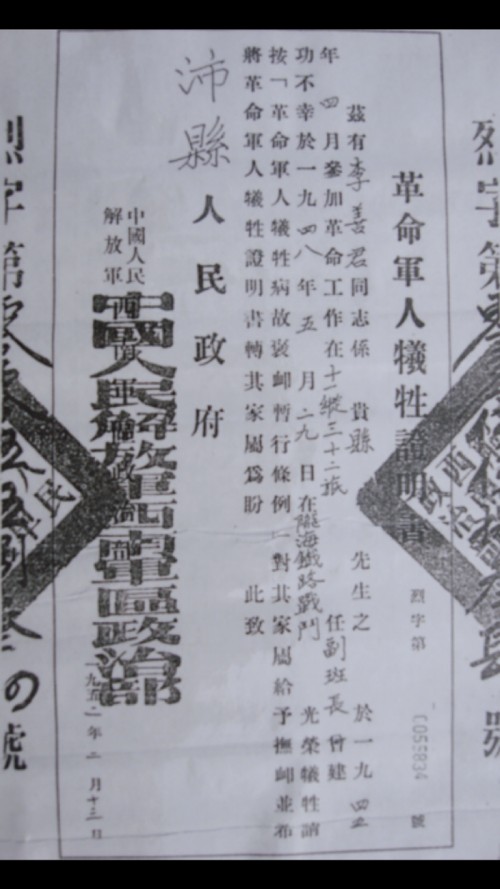 烈字第
號
革命軍人犧牲證明書 烈字第 055834 號
茲有李善君同志係 貴縣 先生之 於一九四五
年四月參加革命工作在十一縱三十二旅 任副班長曾建
功不幸於一九四八年五月二九日在隴海鐵路戰鬥 光榮犧牲請
按「革命軍人犧牲病故褒卹暫行條例」對其家屬給予撫卹並希
將革命軍人犧牲證明書轉其家屬爲盼 此致
沛縣人民政府
中國人民
解放軍
中國人民解放軍西南軍區政治部
一九五二年二月十三日
烈字第
號